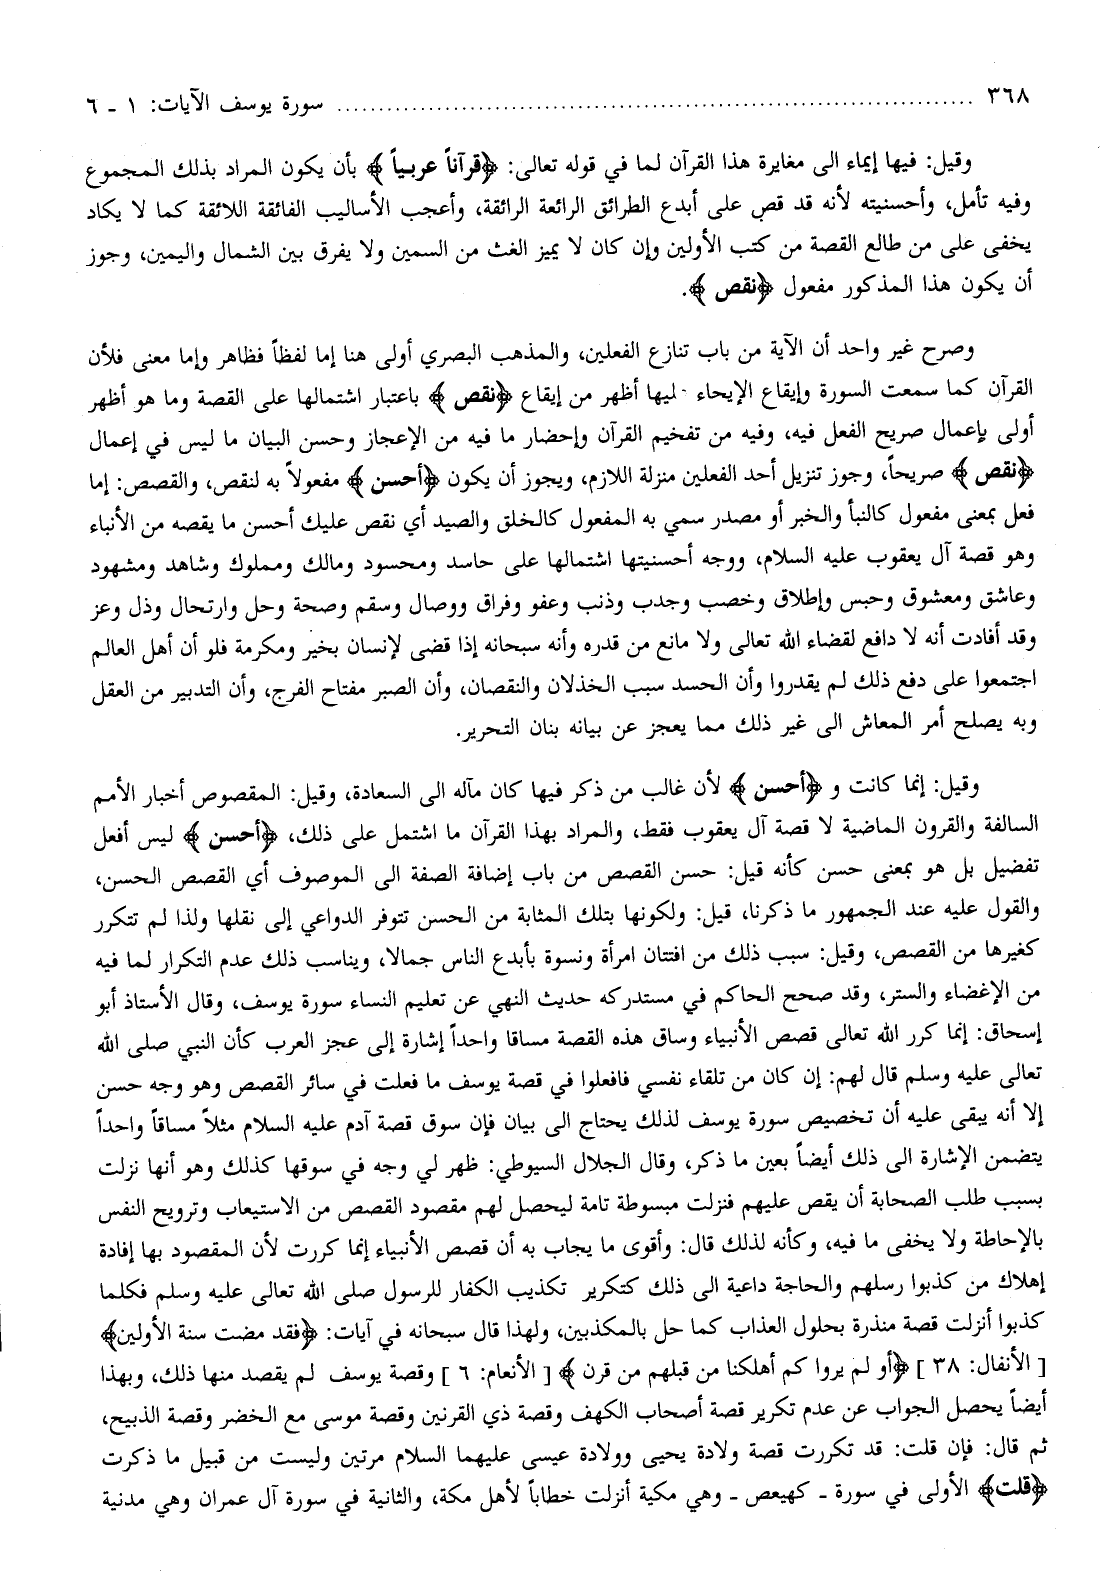 ٣٦٨ ........................ سورة يوسف الآيات: ١ ـ ٦
وقيل: فيها إيماء الى مغايرة هذا القرآن لما في قوله تعالى: ﴿قرآناً عربياً﴾ بأن يكون المراد بذلك المجموع
وفيه تأمل، وأحسنيته لأنه قد قص على أبدع الطرائق الرائعة الرائقة، وأعجب الأساليب الفائقة اللائقة كما لا يكاد
يخفى على من طالع القصة من كتب الأولين وإن كان لا يميز الغث من السمين ولا يفرق بين الشمال واليمين، وجوز
أن يكون هذا المذكور مفعول ﴿نقص﴾.
وصرح غير واحد أن الآية من باب تنازع الفعلين، والمذهب البصري أولى هنا إما لفظاً فظاهر وإما معنى فلأن
القرآن كما سمعت السورة وإيقاع الإيحاء ليها أظهر من إيقاع ﴿نقص﴾ باعتبار اشتمالها على القصة وما هو أظهر
أولى بإعمال صريح الفعل فيه، وفيه من تفخيم القرآن وإحضار ما فيه من الإعجاز وحسن البيان ما ليس في إعمال
﴿نقص﴾ صريحاً، وجوز تنزيل أحد الفعلين منزلة اللازم، ويجوز أن يكون ﴿أحسن﴾ مفعولاً به لنقص، والقصص: إما
فعل بمعنى مفعول كالنبأ والخبر أو مصدر سمي به المفعول كالخلق والصيد أي نقص عليك أحسن ما يقصه من الأنباء
وهو قصة آل يعقوب عليه السلام، ووجه أحسنيتها اشتمالها على حاسد ومحسود ومالك ومملوك وشاهد ومشهود
وعاشق ومعشوق وحبس وإطلاق وخصب وجدب وذنب وعفو وفراق ووصال وسقم وصحة وحل وارتحال وذل وعز
وقد أفادت أنه لا دافع لقضاء الله تعالى ولا مانع من قدره وأنه سبحانه إذا قضى لإنسان بخير ومكرمة فلو أن أهل العالم
اجتمعوا على دفع ذلك لم يقدروا وأن الحسد سبب الخذلان والنقصان، وأن الصبر مفتاح الفرج، وأن التدبير من العقل
وبه يصلح أمر المعاش الى غير ذلك مما يعجز عن بيانه بنان التحرير.
وقيل: إنما كانت و ﴿أحسن﴾ لأن غالب من ذكر فيها كان مآله الى السعادة، وقيل: المقصوص أخبار الأمم
السالفة والقرون الماضية لا قصة آل يعقوب فقط، والمراد بهذا القرآن ما اشتمل على ذلك، ﴿أحسن﴾ ليس أفعل
تفضيل بل هو بمعنى حسن كأنه قيل: حسن القصص من باب إضافة الصفة الى الموصوف أي القصص الحسن،
والقول عليه عند الجمهور ما ذكرنا، قيل: ولكونها بتلك المثابة من الحسن تتوفر الدواعي إلى نقلها ولذا لم تتكرر
كغيرها من القصص، وقيل: سبب ذلك من افتتان امرأة ونسوة بأبدع الناس جمالا، ويناسب ذلك عدم التكرار لما فيه
من الإغضاء والستر، وقد صحح الحاكم في مستدركه حديث النهي عن تعليم النساء سورة يوسف، وقال الأستاذ أبو
إسحاق: إنما كرر الله تعالى قصص الأنبياء وساق هذه القصة مساقا واحداً إشارة إلى عجز العرب كأن النبي صلى الله
تعالى عليه وسلم قال لهم: إن كان من تلقاء نفسي فافعلوا في قصة يوسف ما فعلت في سائر القصص وهو وجه حسن
إلا أنه يبقى عليه أن تخصيص سورة يوسف لذلك يحتاج الى بيان فإن سوق قصة آدم عليه السلام مثلاً مساقاً واحداً
يتضمن الإشارة الى ذلك أيضاً بعين ما ذكر، وقال الجلال السيوطي: ظهر لي وجه في سوقها كذلك وهو أنها نزلت
بسبب طلب الصحابة أن يقص عليهم فنزلت مبسوطة تامة ليحصل لهم مقصود القصص من الاستيعاب وترويح النفس
بالإحاطة ولا يخفى ما فيه، وكأنه لذلك قال: وأقوى ما يجاب به أن قصص الأنبياء إنما كررت لأن المقصود بها إفادة
إهلاك من كذبوا رسلهم والحاجة داعية الى ذلك كتكرير تكذيب الكفار للرسول صلى الله تعالى عليه وسلم فكلما
كذبوا أنزلت قصة منذرة بحلول العذاب كما حل بالمكذبين، ولهذا قال سبحانه في آيات: ﴿فقد مضت سنة الأولين﴾
[ الأنفال: ٣٨ ] ﴿أو لم يروا كم أهلكنا من قبلهم من قرن﴾ [ الأنعام: ٦ ] وقصة يوسف لم يقصد منها ذلك، وبهذا
أيضاً يحصل الجواب عن عدم تكرير قصة أصحاب الكهف وقصة ذي القرنين وقصة موسى مع الخضر وقصة الذبيح،
ثم قال: فإن قلت: قد تكررت قصة ولادة يحيى وولادة عيسى عليهما السلام مرتين وليست من قبيل ما ذكرت
﴿قلت﴾ الأولى في سورة ـ كهيعص ـ وهي مكية أنزلت خطاباً لأهل مكة، والثانية في سورة آل عمران وهي مدنية